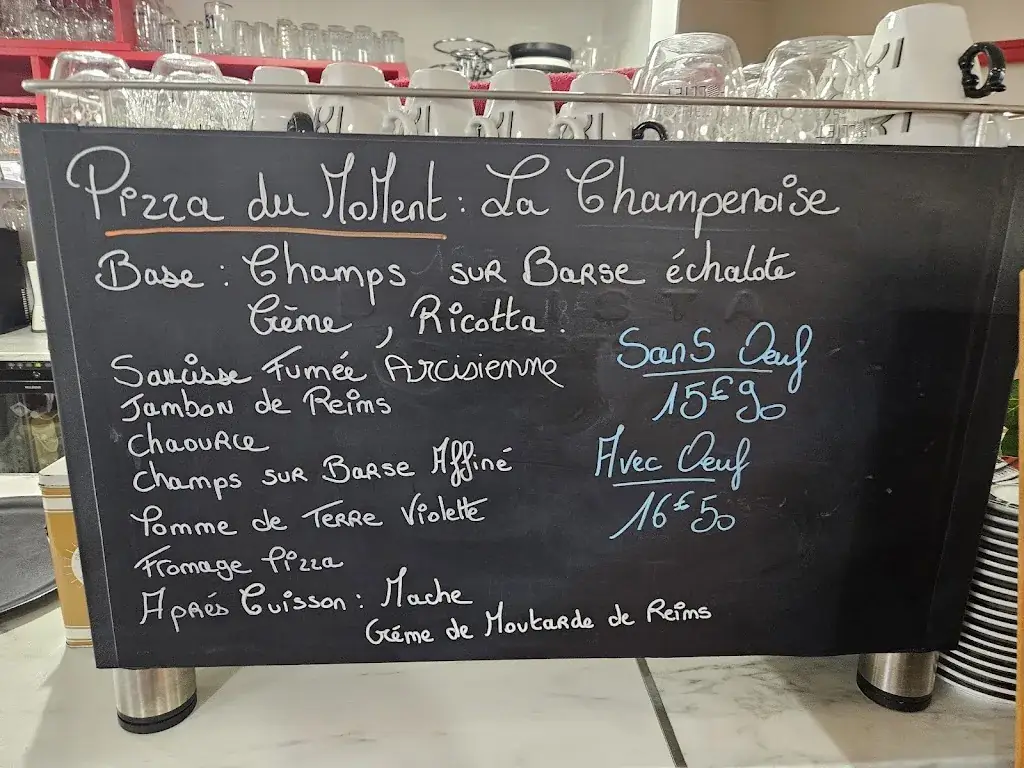 Pizza du Moment : La Champenoise
Base : Champs sur Barse échalote
Crème , Ricotta .
Saucisse Fumée Arcisienne
Jambon de Reims
Chaource
Champs sur Barse Affiné
Pomme de Terre Violette
Fromage Pizza
Après Cuisson : Mache
Crème de Moutarde de Reims
Sans Oeuf
15€90
Avec Oeuf
16€50